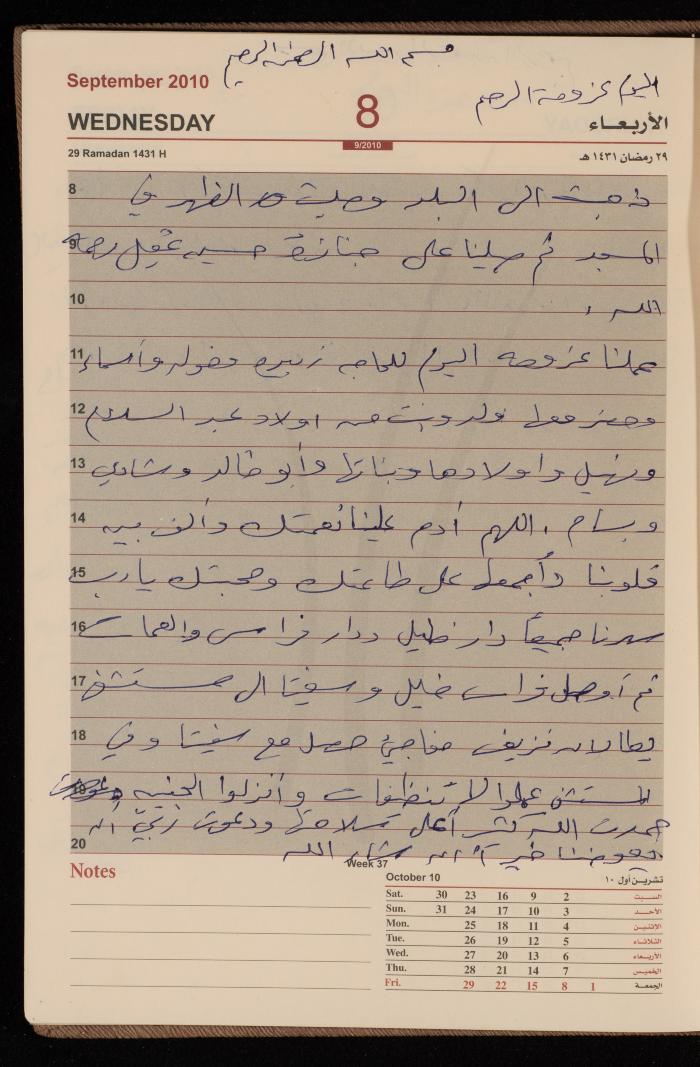 بسم الله الرحمن الرحيم
September 2010
اليوم عزومة الرحم
WEDNESDAY
8
الأربعاء
9/2010
29 Ramadan 1431 H
٢٩ رمضان ١٤٣١ هـ
8 ذهبت الى البلد وصليت الظهر في
9 المسجد ثم صلينا على جنازة حسين عقل رحمه
10 الله .
11 عملنا عزومة اليوم للحاجه زبيده وخوله وأسماء
12 وحضر معها ولد وبنت من اولاد عبد السلام
13 ونهيل واولادها وبناتها وأبو خالد وشادي
14 وبسام . اللهم أدم علينا نعمتك وألف بين
15 قلوبنا وأجمعها على طاعتك ومحبتك يا رب
16 سهرنا جميعاً دار خليل ودار فراس والعمات
17 ثم أوصل فراس خليل وسفيتا الى مستشفى
18 نزيف مفاجئ حصل مع سفيتا وفي
19 المستشفى عملوا لا تنظيفات وأنزلوا الجنين
حمدت الله كثيراً على سلامتها ودعوت ربي أن
20 يعوضنا خير ان شاء الله
Week 37
Notes
October 10
تشرين أول ١٠
Sat. 30 23 16 9 2 السبت
Sun. 31 24 17 10 3 الأحد
Mon. 25 18 11 4 الاثنين
Tue. 26 19 12 5 الثلاثاء
Wed. 27 20 13 6 الأربعاء
Thu. 28 21 14 7 الخميس
Fri. 29 22 15 8 1 الجمعة